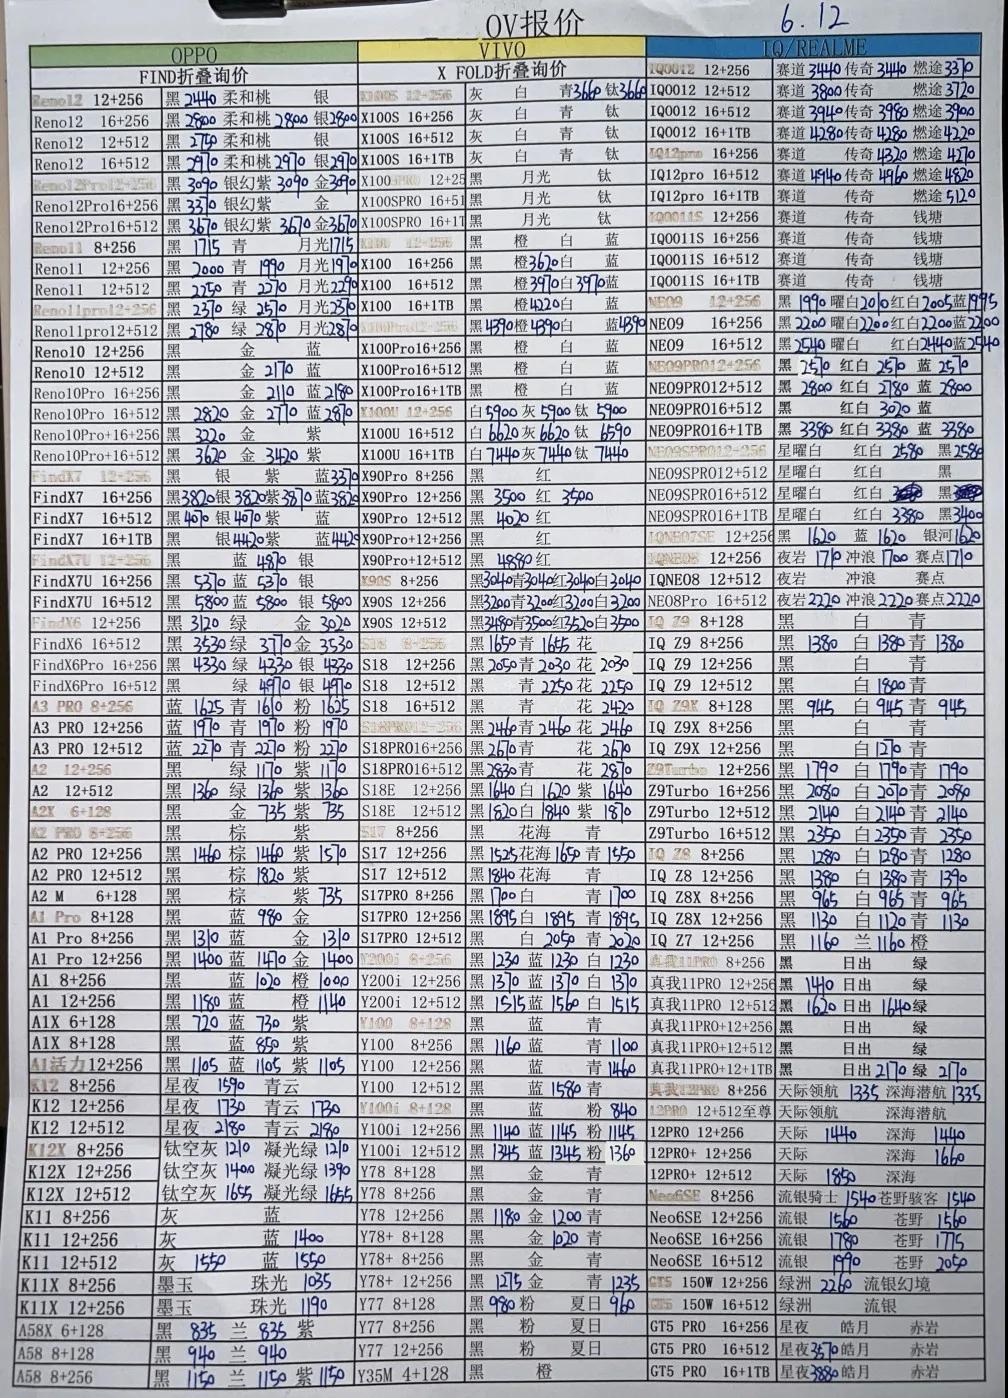 OV报价 6.12
OPPO VIVO IQ/REALME
FIND折叠询价 X FOLD折叠询价 IQ0012 12+256 赛道 3440 传奇 3440 燃途 3370
Reno12 12+256 黑 2440 柔和桃 银 X100S 12+256 灰 白 青 3660 钛 3660 IQ0012 12+512 赛道 3800 传奇 燃途 3720
Reno12 16+256 黑 2800 柔和桃 2800 银 2800 X100S 16+256 灰 白 青 钛 IQ0012 16+512 赛道 3940 传奇 3980 燃途 3900
Reno12 12+512 黑 2750 柔和桃 银 X100S 16+512 灰 白 青 钛 IQ0012 16+1TB 赛道 4280 传奇 4280 燃途 4220
Reno12 16+512 黑 2970 柔和桃 2970 银 2970 X100S 16+1TB 灰 白 青 钛 IQ12pro 16+256 赛道 传奇 4320 燃途 4270
Reno12Pro12+256 黑 3090 银幻紫 3090 金 3090 X100SPRO 12+25 黑 月光 钛 IQ12pro 16+512 赛道 4940 传奇 4960 燃途 4820
Reno12Pro16+256 黑 3370 银幻紫 金 X100SPRO 16+51 黑 月光 钛 IQ12pro 16+1TB 赛道 传奇 燃途 5120
Reno12Pro16+512 黑 3670 银幻紫 3670 金 3670 X100SPRO 16+1T 黑 月光 钛 IQ0011S 12+256 赛道 传奇 钱塘
Reno11 8+256 黑 1715 青 月光 1715 X100 12+256 黑 橙 白 蓝 IQ0011S 16+256 赛道 传奇 钱塘
Reno11 12+256 黑 2000 青 1990 月光 1970 X100 16+256 黑 橙 3620 白 蓝 IQ0011S 16+512 赛道 传奇 钱塘
Reno11 12+512 黑 2250 青 2270 月光 2290 X100 16+512 黑 橙 3970 白 3970 蓝 IQ0011S 16+1TB 赛道 传奇 钱塘
Reno11pro12+256 黑 2370 绿 2570 月光 2370 X100 16+1TB 黑 橙 4220 白 蓝 NEO9 12+256 黑 1990 曜白 2010 红白 2005 蓝 1995
Reno11pro12+512 黑 2780 绿 2870 月光 2870 X100Pro12+256 黑 4390 橙 4390 白 蓝 4390 NEO9 16+256 黑 2200 曜白 2200 红白 2200 蓝 2200
Reno10 12+256 黑 金 蓝 X100Pro16+256 黑 橙 白 蓝 NEO9 16+512 黑 2540 曜白 红白 2440 蓝 2540
Reno10 12+512 黑 金 2170 蓝 X100Pro16+512 黑 橙 白 蓝 NEO9PRO12+256 黑 2570 红白 2570 蓝 2570
Reno10Pro 16+256 黑 金 2110 蓝 2180 X100Pro16+1TB 黑 橙 白 蓝 NEO9PRO12+512 黑 2800 红白 2780 蓝 2800
Reno10Pro 16+512 黑 2820 金 2770 蓝 2870 X100U 12+256 白 5900 灰 5900 钛 5900 NEO9PRO16+512 黑 红白 3020 蓝
Reno10Pro+16+256 黑 3220 金 紫 X100U 16+512 白 6620 灰 6620 钛 6590 NEO9PRO16+1TB 黑 3380 红白 3380 蓝 3380
Reno10Pro+16+512 黑 3620 金 3420 紫 X100U 16+1TB 白 7440 灰 7440 钛 7440 NEO9SPRO12+256 星曜白 红白 2580 黑 2580
FindX7 12+256 黑 银 紫 蓝 3370 X90Pro 8+256 黑 红 NEO9SPRO12+512 星曜白 红白 黑
FindX7 16+256 黑 3820 银 3820 紫 3870 蓝 3820 X90Pro 12+256 黑 3500 红 3500 NEO9SPRO16+512 星曜白 红白 黑
FindX7 16+512 黑 4070 银 4070 紫 蓝 X90Pro 12+512 黑 4020 红 NEO9SPRO16+1TB 星曜白 红白 3380 黑 3400
FindX7 16+1TB 黑 银 4420 紫 蓝 4420 X90Pro+12+256 黑 红 IQNEO7SE 12+256 黑 1620 蓝 1620 银河 1620
FindX7U 12+256 黑 蓝 4870 银 X90Pro+12+512 黑 4880 红 IQNEO8 12+256 夜岩 1710 冲浪 1700 赛点 1710
FindX7U 16+256 黑 5370 蓝 5370 银 X90S 8+256 黑 3040 青 3040 红 3040 白 3040 IQNEO8 12+512 夜岩 冲浪 赛点
FindX7U 16+512 黑 5800 蓝 5800 银 5800 X90S 12+256 黑 3200 青 3200 红 3200 白 3200 NEO8Pro 16+512 夜岩 2220 冲浪 2220 赛点 2220
FindX6 12+256 黑 3120 绿 金 3020 X90S 12+512 黑 3480 青 3500 红 3520 白 3500 IQ Z9 8+128 黑 白 青
FindX6 16+512 黑 3530 绿 3770 金 3530 S18 8+256 黑 1650 青 1655 花 IQ Z9 8+256 黑 1380 白 1380 青 1380
FindX6Pro 16+256 黑 4330 绿 4330 银 4330 S18 12+256 黑 2050 青 2030 花 2030 IQ Z9 12+256 黑 白 青
FindX6Pro 16+512 黑 绿 4970 银 4970 S18 12+512 黑 青 2250 花 2250 IQ Z9 12+512 黑 白 1800 青
A3 PRO 8+256 蓝 1625 青 1610 粉 1625 S18 16+512 黑 青 花 2420 IQ Z9X 8+128 黑 945 白 945 青 945
A3 PRO 12+256 蓝 1970 青 1970 粉 1970 S18PRO12+256 黑 2460 青 2460 花 2460 IQ Z9X 8+256 黑 白 青
A3 PRO 12+512 蓝 2270 青 2270 粉 2270 S18PRO16+256 黑 2670 青 花 2670 IQ Z9X 12+256 黑 白 1270 青
A2 12+256 黑 绿 1170 紫 1170 S18PRO16+512 黑 2830 青 花 2870 Z9Turbo 12+256 黑 1790 白 1790 青 1790
A2 12+512 黑 1360 绿 1360 紫 1360 S18E 12+256 黑 1640 白 1620 紫 1640 Z9Turbo 16+256 黑 2080 白 2070 青 2080
A2X 6+128 黑 金 735 紫 735 S18E 12+512 黑 1820 白 1840 紫 1870 Z9Turbo 12+512 黑 2140 白 2140 青 2140
A2 PRO 8+256 黑 棕 紫 S17 8+256 黑 花海 青 Z9Turbo 16+512 黑 2350 白 2350 青 2350
A2 PRO 12+256 黑 1460 棕 1460 紫 1570 S17 12+256 黑 1525 花海 1650 青 1550 IQ Z8 8+256 黑 1280 白 1280 青 1280
A2 PRO 12+512 黑 棕 1820 紫 S17 12+512 黑 1840 花海 青 IQ Z8 12+256 黑 1380 白 1380 青 1390
A2 M 6+128 黑 棕 紫 735 S17PRO 8+256 黑 1700 白 青 1700 IQ Z8X 8+256 黑 965 白 965 青 965
A1 Pro 8+128 黑 蓝 980 金 S17PRO 12+256 黑 1895 白 1895 青 1895 IQ Z8X 12+256 黑 1130 白 1120 青 1130
A1 Pro 8+256 黑 1310 蓝 金 1310 S17PRO 12+512 黑 白 2050 青 2020 IQ Z7 12+256 黑 1160 兰 1160 橙
A1 Pro 12+256 黑 1400 蓝 1410 金 1400 Y200i 8+256 黑 1230 蓝 1230 白 1230 真我11PRO 8+256 黑 日出 绿
A1 8+256 黑 蓝 1020 橙 1000 Y200i 12+256 黑 1370 蓝 1370 白 1370 真我11PRO 12+256 黑 1410 日出 绿
A1 12+256 黑 1180 蓝 橙 1140 Y200i 12+512 黑 1515 蓝 1560 白 1515 真我11PRO 12+512 黑 1620 日出 1640 绿
A1X 6+128 黑 720 蓝 730 紫 Y100 8+128 黑 蓝 青 真我11PRO+12+256 黑 日出 绿
A1X 8+128 黑 蓝 850 紫 Y100 8+256 黑 1160 蓝 青 1100 真我11PRO+12+512 黑 日出 绿
A1活力12+256 黑 1105 蓝 1105 紫 1105 Y100 12+256 黑 蓝 青 1460 真我11PRO+12+1TB 黑 日出 2170 绿 2170
K12 8+256 星夜 1590 青云 Y100 12+512 黑 蓝 1580 青 真我12PRO 8+256 天际领航 1335 深海潜航 1335
K12 12+256 星夜 1730 青云 1730 Y100i 8+128 黑 蓝 粉 840 12PRO 12+512至尊 天际领航 深海潜航
K12 12+512 星夜 2180 青云 2180 Y100i 12+256 黑 1140 蓝 1145 粉 1145 12PRO 12+256 天际 1440 深海 1440
K12X 8+256 钛空灰 1210 凝光绿 1210 Y100i 12+512 黑 1345 蓝 1345 粉 1360 12PRO+ 12+256 天际 深海 1660
K12X 12+256 钛空灰 1400 凝光绿 1390 Y78 8+128 黑 金 青 12PRO+ 12+512 天际 1850 深海
K12X 12+512 钛空灰 1655 凝光绿 1655 Y78 8+256 黑 金 青 Neo6SE 8+256 流银骑士 1540 苍野骇客 1540
K11 8+256 灰 蓝 Y78 12+512 黑 1180 金 1200 青 Neo6SE 12+256 流银 1560 苍野 1560
K11 12+256 灰 蓝 1400 Y78+ 8+128 黑 金 1020 青 Neo6SE 16+256 流银 1780 苍野 1775
K11 12+512 灰 1550 蓝 1550 Y78+ 8+256 黑 金 青 Neo6SE 16+512 流银 1990 苍野 2050
K11X 8+256 墨玉 珠光 1035 Y78+ 12+256 黑 1275 金 青 1235 GT5 150W 12+256 绿洲 2260 流银幻境
K11X 12+256 墨玉 珠光 1190 Y77 8+128 黑 980 粉 夏日 960 GT5 150W 16+512 绿洲 流银
A58X 6+128 黑 835 兰 835 紫 Y77 8+256 黑 粉 夏日 GT5 PRO 16+256 星夜 皓月 赤岩
A58 8+128 黑 940 兰 940 Y77 12+256 黑 粉 夏日 GT5 PRO 16+512 星夜 3570 皓月 赤岩
A58 8+256 黑 1150 兰 1150 紫 1150 Y35M 4+128 黑 橙 GT5 PRO 16+1TB 星夜 3880 皓月 赤岩